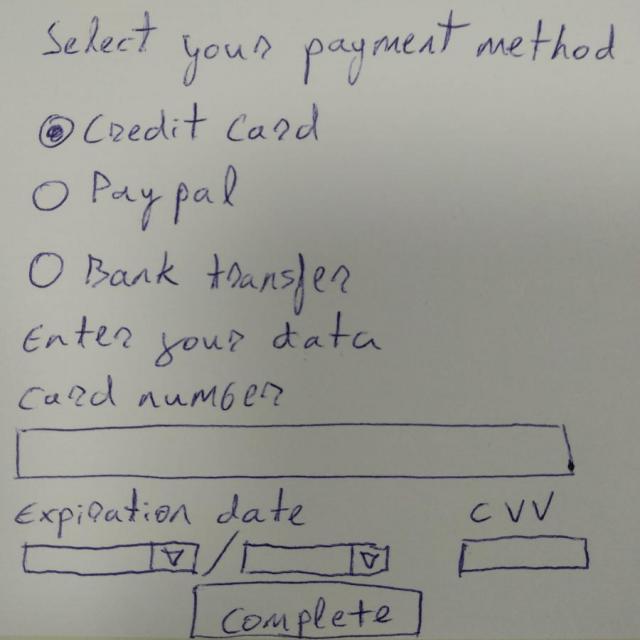 Select your payment method
Credit Card
Paypal
Bank transfer
Enter your data
Card number
Expiration date
CVV
/
Complete